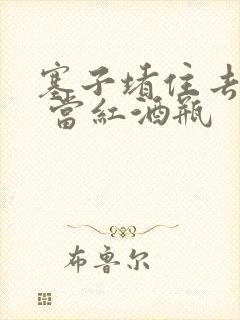 塞子堵住去
當紅酒瓶
布鲁尔